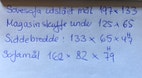 Sovesofa utslått mål 197 x 133
Magasin skyffe under 125 x 65
Sittebredde : 133 x 65 x 44 H
Sofamål 162 x 82 x 79 H